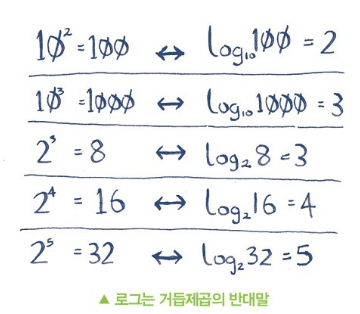 10² = 100 ↔ log₁₀100 = 2
10³ = 1000 ↔ log₁₀1000 = 3
2³ = 8 ↔ log₂8 = 3
2⁴ = 16 ↔ log₂16 = 4
2⁵ = 32 ↔ log₂32 = 5
▲ 로그는 거듭제곱의 반대말